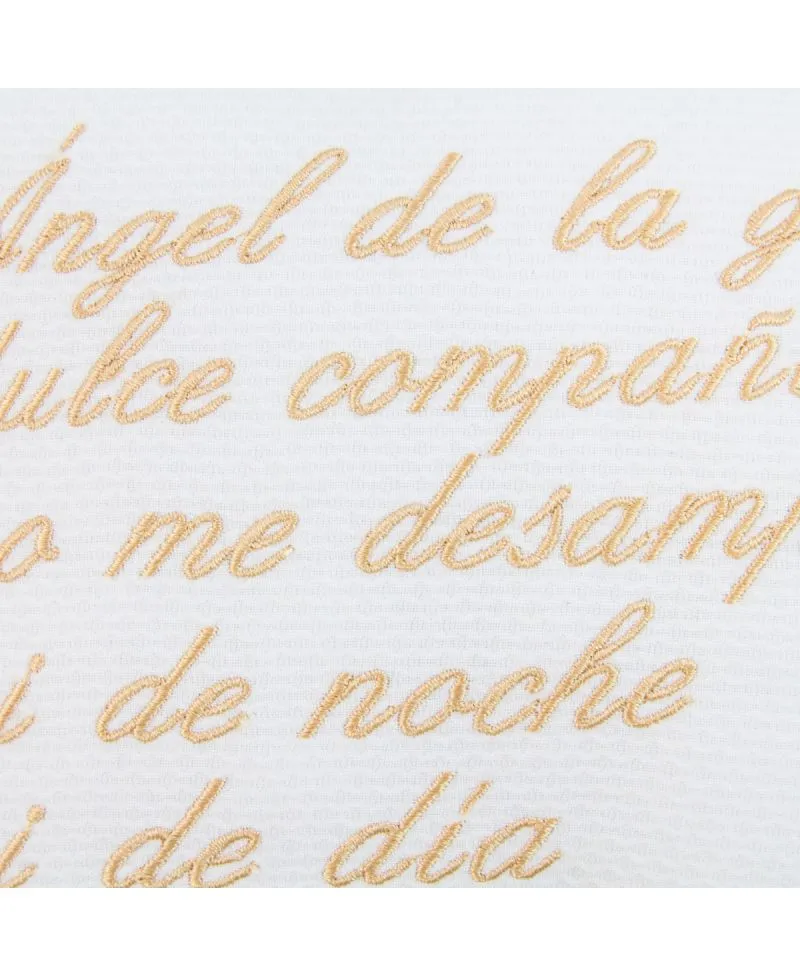 Ángel de la g
dulce compañi
o me desamp
i de noche
i de día